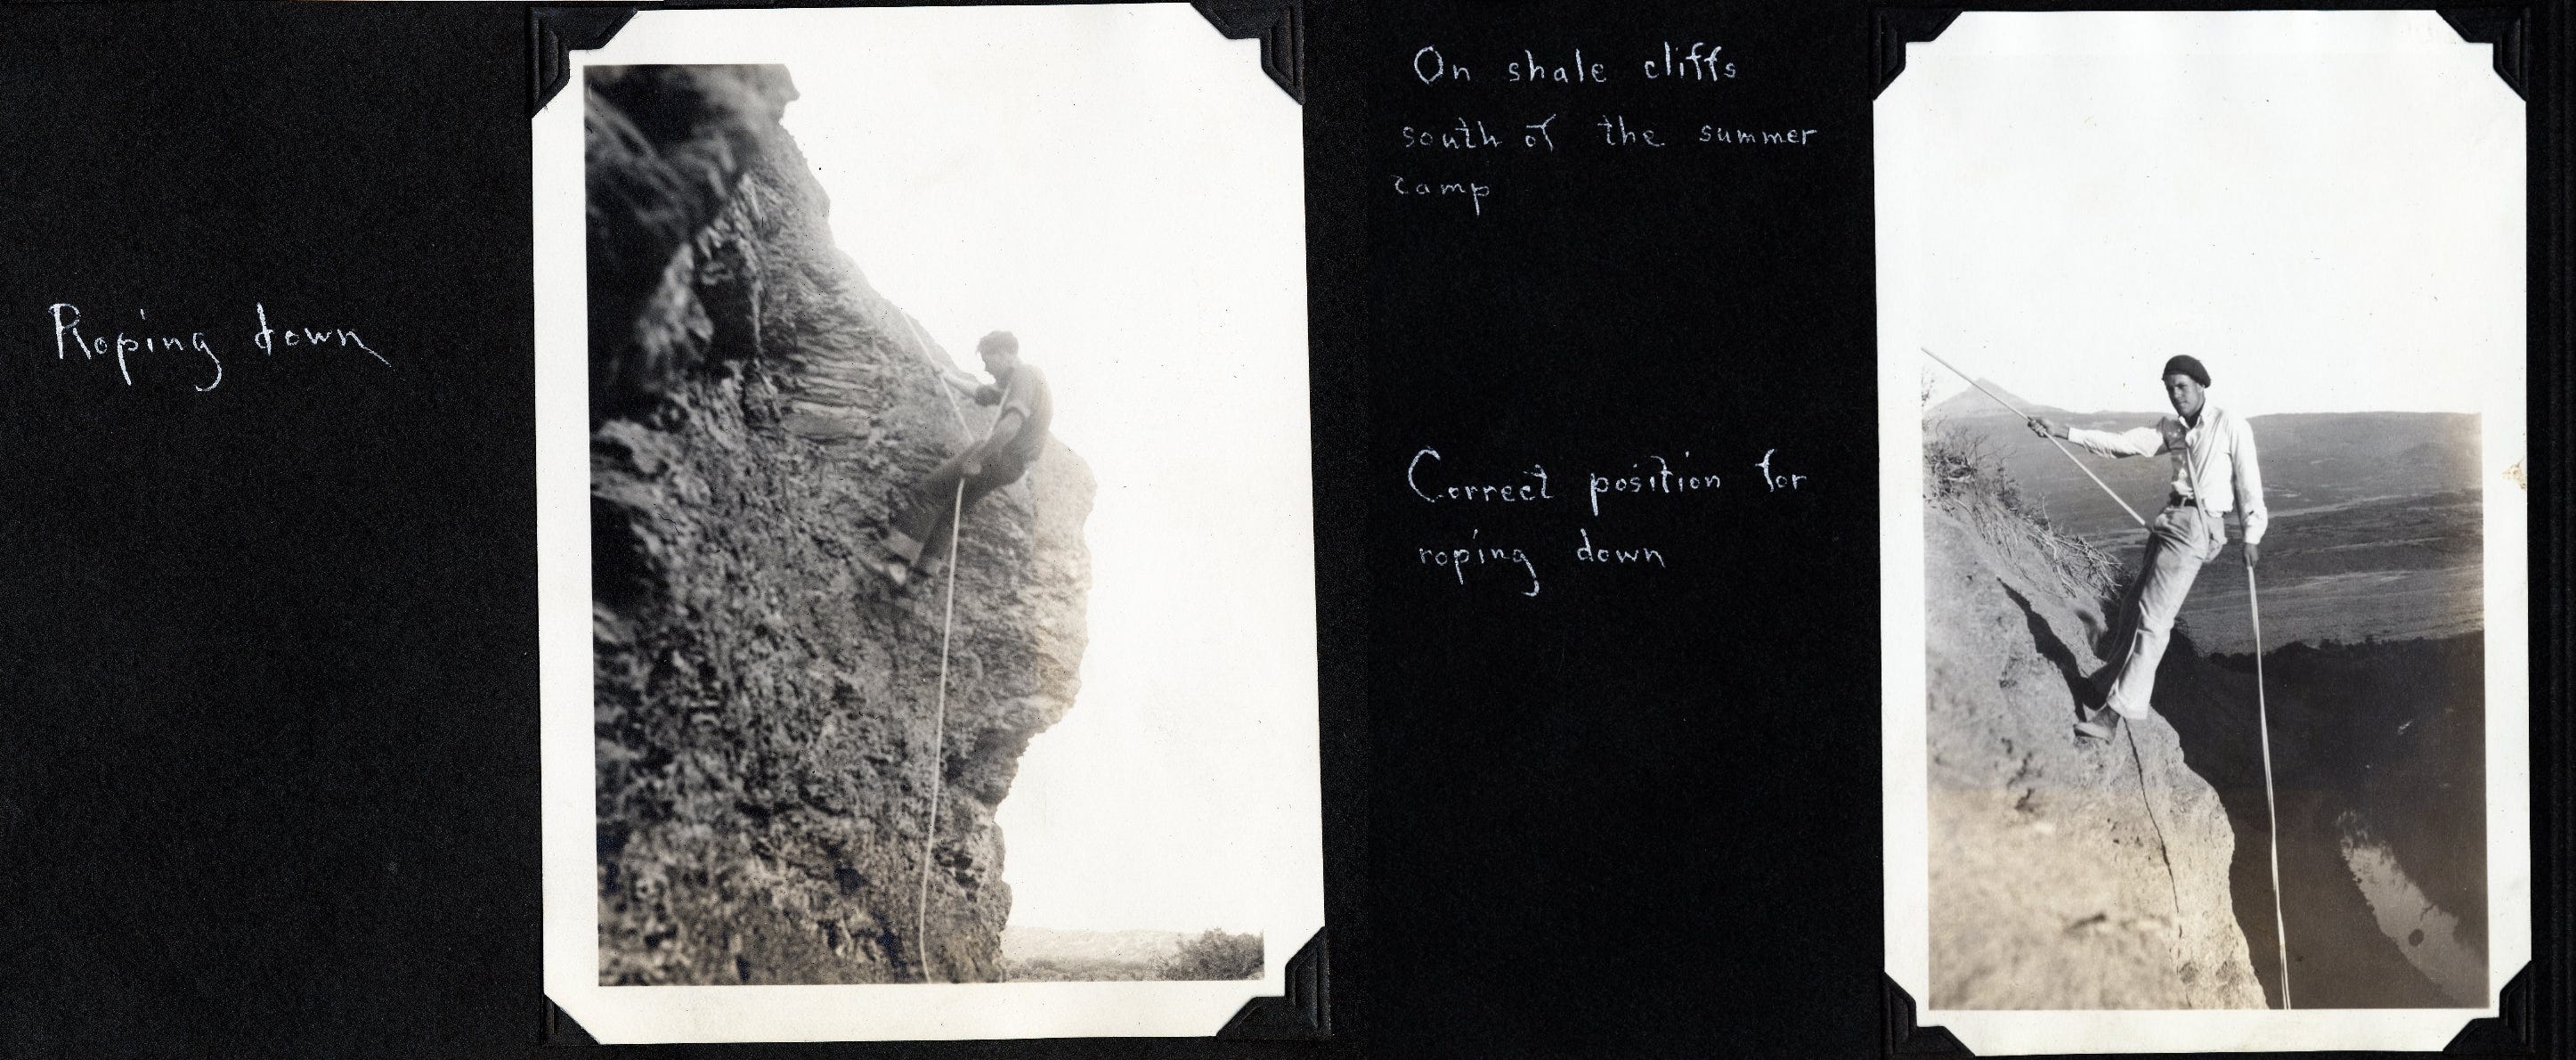 Roping down
On shale cliffs
south of the summer
camp
Correct position for
roping down